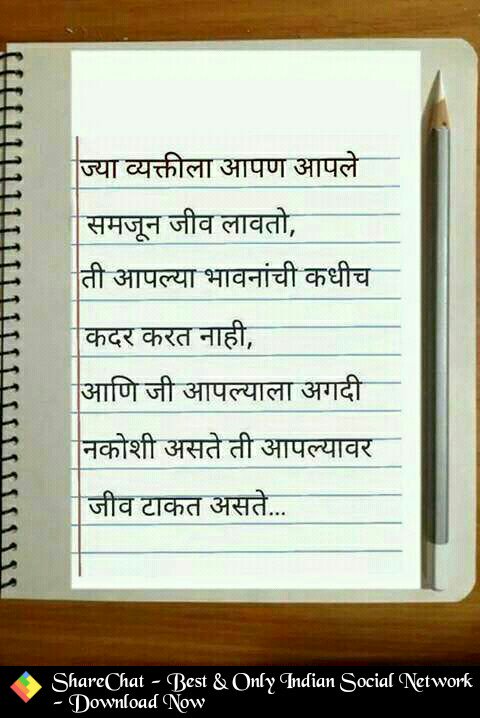 ज्या व्यक्तीला आपण आपले
समजून जीव लावतो,
ती आपल्या भावनांची कधीच
कदर करत नाही,
आणि जी आपल्याला अगदी
नकोशी असते ती आपल्यावर
जीव टाकत असते...
ShareChat - Best & Only Indian Social Network
- Download Now